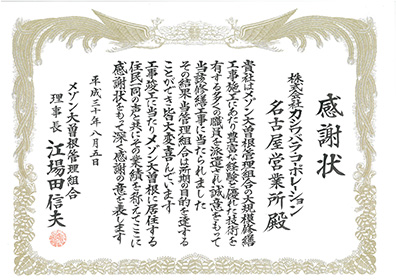 感謝状
株式会社カシワバラ・コーポレーション
名古屋営業所殿
貴社はメゾン大曽根管理組合の大規模修繕
工事施工にあたり豊富な経験と優れた技術を
有する多くの職員を派遣され誠意をもって
当該修繕工事に当たられました
その結果当管理組合は所期の目的を達する
ことができ皆大変喜んでいます
工事竣工に当たりメゾン大曽根に居住する
住民一同の声と共にその業績を称えてここに
感謝状をもって深く感謝の意を表します
平成三十年八月五日
メゾン大曽根管理組合
理事長 江場田信夫